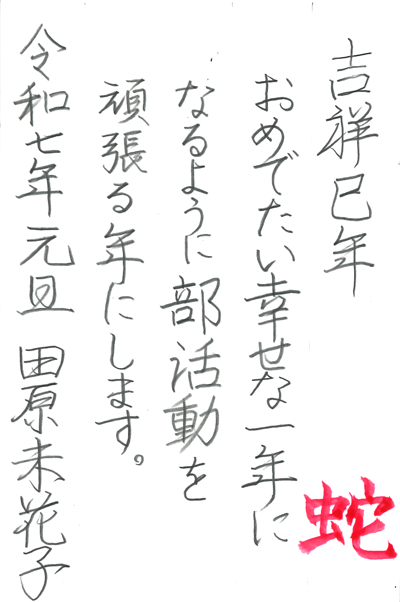 吉祥巳年
おめでたい幸せな一年に
なるように部活動を
頑張る年にします。
令和七年元旦 田原未花子
蛇